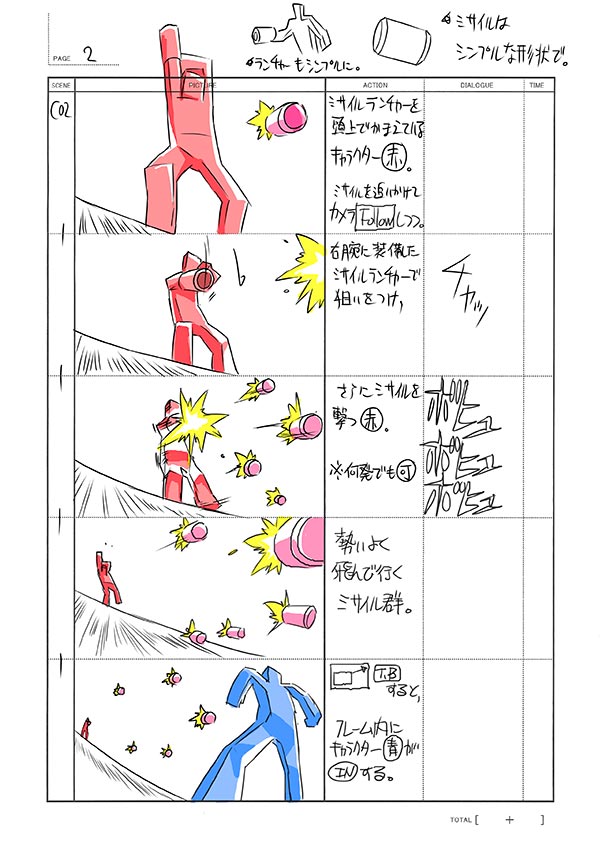 PAGE 2
☆ランチャーもシンプルに。
☆ミサイルは
シンプルな形状で。
SCENE PICTURE ACTION DIALOGUE TIME
C02
ミサイルランチャーを
頭上でかまえている
キャラクター赤。
ミサイルを追いかけて
カメラFollowしつつ。
右腕に装備した
ミサイルランチャーで
狙いをつけ,
チャッ
さらにミサイルを
撃つ赤。
※何発でも可
ボシュ
ボシュ
ボシュ
勢いよく
飛んで行く
ミサイル群。
T.B
すると,
フレーム内に
キャラクター青が
INする。
TOTAL [ + ]